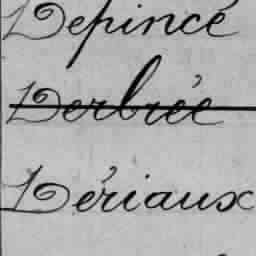 Depincé
Derbrée
Dériaux